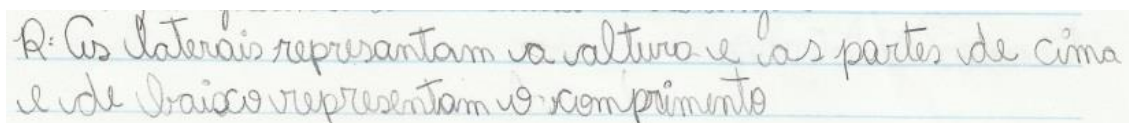 R: As laterais represantam a altura e as partes de cima
e de baixo representam o comprimento